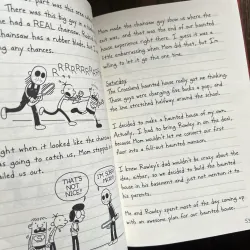 part was this
There was this big guy w
he had a REAL chainsaw.
chainsaw has a rubber blade, but I
ng any chances.
RRRRRRR
ght when it looked like the chainsaw
as going to catch us, Mom stepped i
ailed us out.
THAT'S
NOT
NICE!
I'M SORRY
MA'AM.
Mom made the chainsaw guy show us where the
exit was, and that was the end of our haunted
house experience right there. I guess it was a
little embarrassing when Mom did that, but I'm
willing to let it go this one time.
Saturday
The Crossland haunted house really got me thinking.
Those guys were charging five bucks a pop, and
the line stretched halfway around the school.
I decided to make a haunted house of my own.
Actually, I had to bring Rowley in on the deal,
because Mom wouldn't let me convert our first
floor into a full-out haunted mansion.
I knew Rowley's dad wouldn't be crazy about the
idea, either, so we decided to build the haunted
house in his basement and just not mention it to
his parents.
Me and Rowley spent most of the day coming up
with an awesome plan for our haunted house.